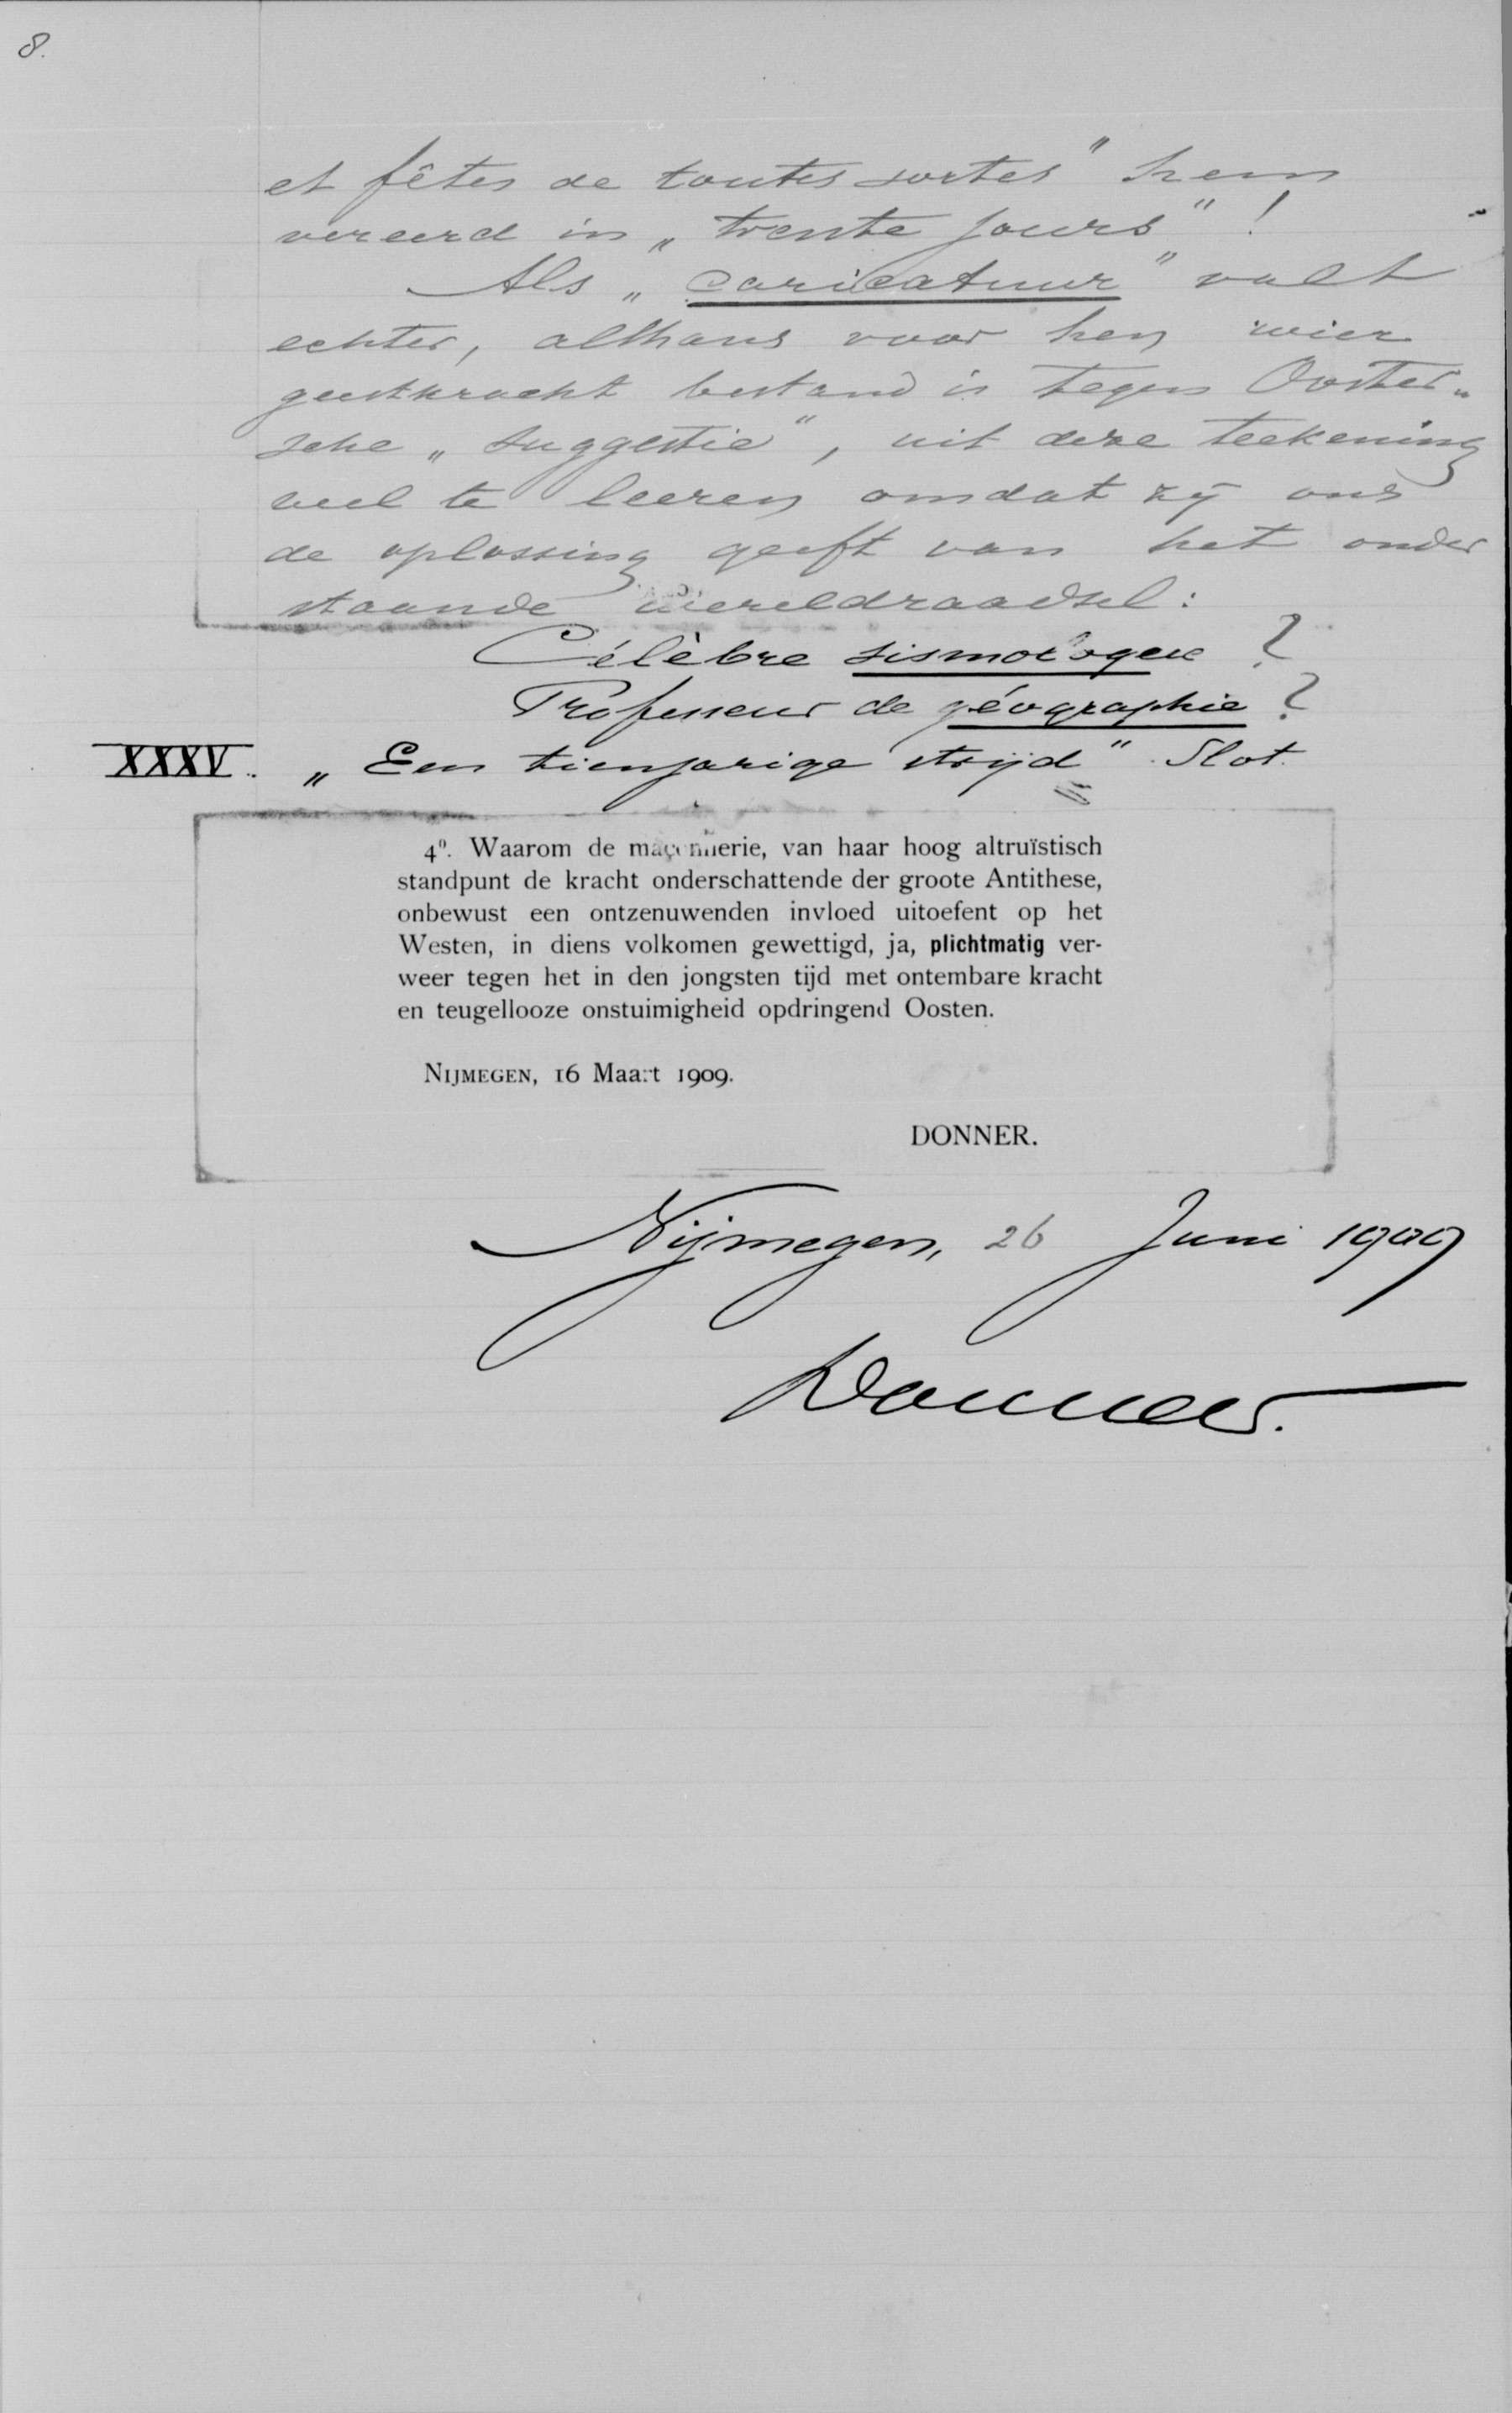 8.
et fêtes de toutes sortes" hem
vereerd in „trente jours"!
Als „caricatuur" valt
echter, althans voor hen wier
geestkracht bestand is tegen Ooster„
sche „suggestie", uit deze teekening
veel te leeren omdat zij ons
de oplossing geeft van het onder
staande wereldraadsel:
Célèbre sismologue ?
Professeur de géographie ?
XXXV. „Een tienjarige strijd" Slot.
4⁰. Waarom de maçonnerie, van haar hoog altruïstisch
standpunt de kracht onderschattende der groote Antithese,
onbewust een ontzenuwenden invloed uitoefent op het
Westen, in diens volkomen gewettigd, ja, plichtmatig ver-
weer tegen het in den jongsten tijd met ontembare kracht
en teugellooze onstuimigheid opdringend Oosten.
NIJMEGEN, 16 Maart 1909.
DONNER.
Nijmegen, 26 Juni 1909
Donner.